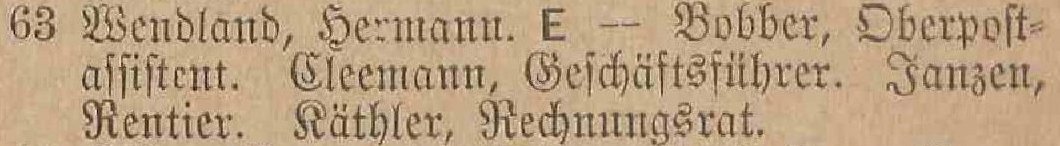 63 Wendland, Hermann. E — Bobber, Oberpost-
assistent. Cleemann, Geschäftsführer. Janzen,
Rentier. Käthler, Rechnungsrat.